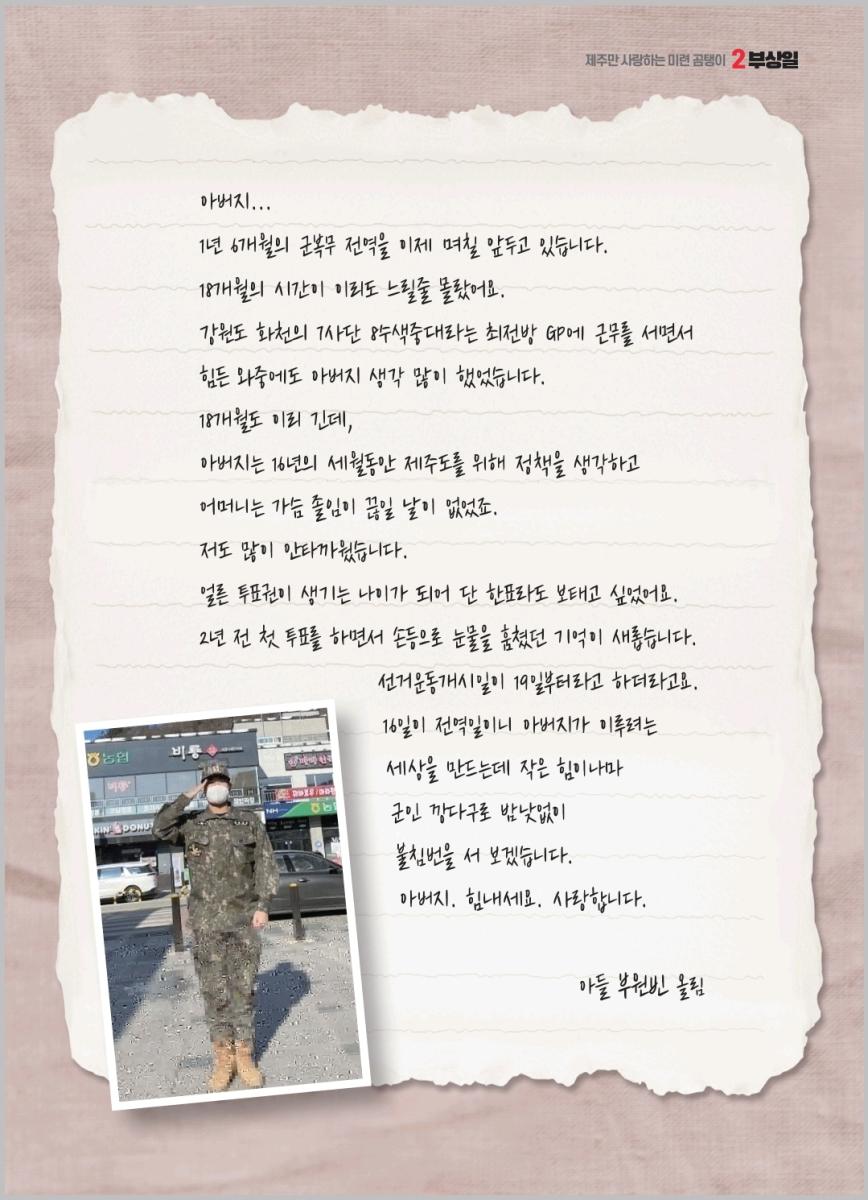 제주만 사랑하는 미련 곰탱이 2 부상일
아버지...
1년 6개월의 군복무 전역을 이제 며칠 앞두고 있습니다.
18개월의 시간이 이리도 느릴줄 몰랐어요.
강원도 화천의 7사단 8수색중대라는 최전방 GP에 근무를 서면서
힘든 와중에도 아버지 생각 많이 했었습니다.
18개월도 이리 긴데,
아버지는 16년의 세월동안 제주도를 위해 정책을 생각하고
어머니는 가슴 졸임이 끊일 날이 없었죠.
저도 많이 안타까웠습니다.
얼른 투표권이 생기는 나이가 되어 단 한표라도 보태고 싶었어요.
2년 전 첫 투표를 하면서 손등으로 눈물을 훔쳤던 기억이 새롭습니다.
선거운동개시일이 19일부터라고 하더라고요.
16일이 전역일이니 아버지가 이루려는
세상을 만드는데 작은 힘이나마
군인 깡다구로 밤낮없이
불침번을 서 보겠습니다.
아버지. 힘내세요. 사랑합니다.
아들 부원빈 올림
농협
비통
KIN' DONUT
NH